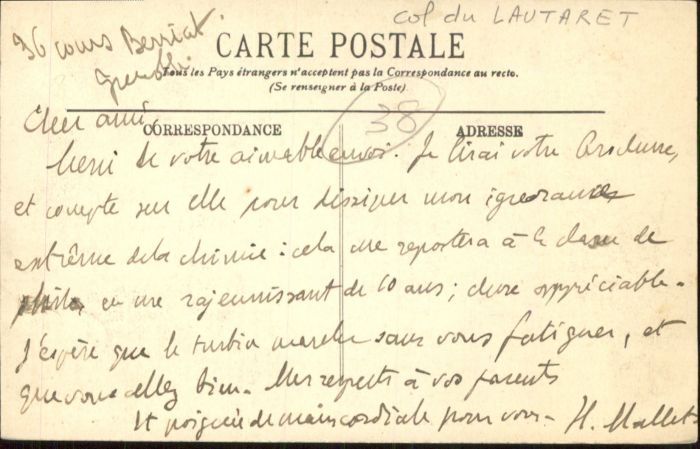 col du LAUTARET
36 cours Berriat
Grenoble
CARTE POSTALE
Tous les Pays étrangers n'acceptent pas la Correspondance au recto.
(Se renseigner à la Poste)
38
Cher ami,
CORRESPONDANCE
ADRESSE
Merci de votre aimable envoi. Je lirai votre brochure,
et compte sur elle pour dissiper mon ignorance
extrême de la chimie : cela me reportera à la classe de
philo, en me rajeunissant de 10 ans ; chose appréciable.
J'espère que le turbin marche sans vous fatiguer, et
que vous allez bien. Mes respects à vos parents
et poignée de main cordiale pour vous. H. Mallet